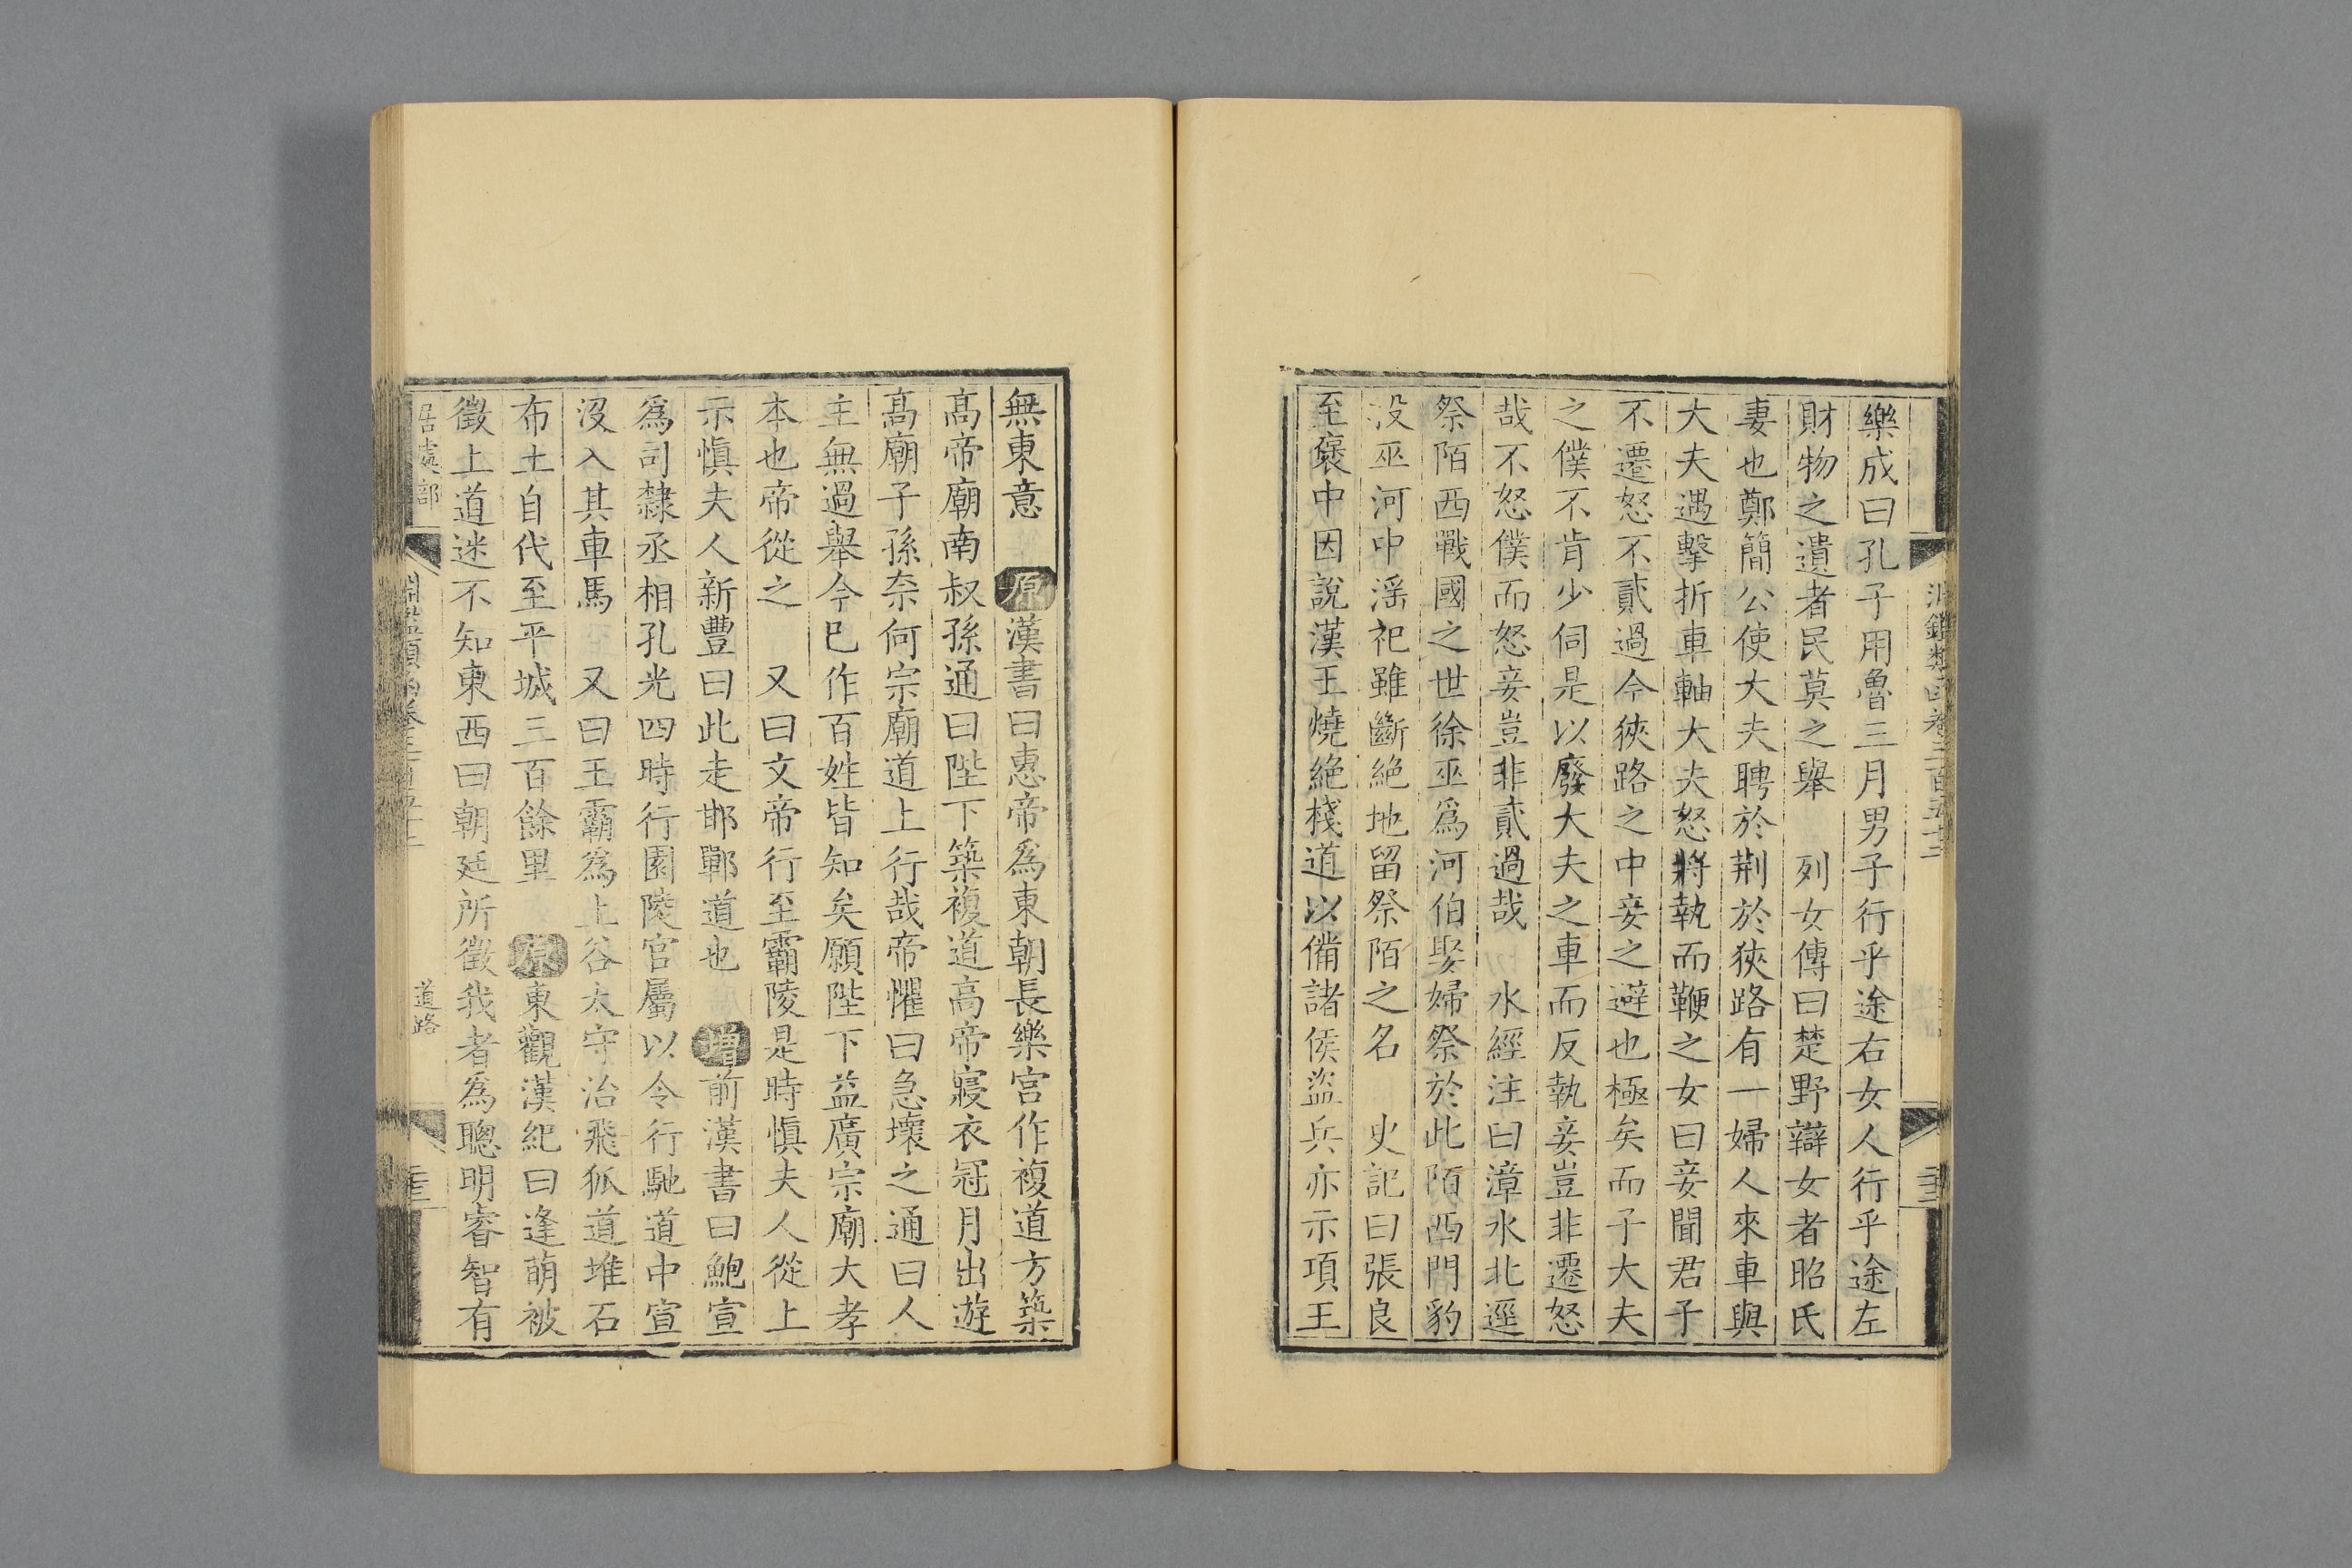 樂成曰孔子用魯三月男子行乎途右女人行乎途左
財物之遺者民莫之舉　列女傳曰楚野辯女者昭氏
妻也鄭簡公使大夫聘於荆於狹路有一婦人來車與
大夫遇擊折車軸大夫怒將執而鞭之女曰妾聞君子
不遷怒不貳過今狹路之中妾之避也極矣而子大夫
之僕不肯少伺是以廢大夫之車而反執妾豈非遷怒
哉不怒僕而怒妾豈非貳過哉　水經注曰漳水北逕
祭陌西戰國之世徐巫爲河伯娶婦祭於此陌西門豹
没巫河中滛祀雖斷絶地留祭陌之名　史記曰張良
至襃中因說漢王燒絶棧道以備諸侯盜兵亦示項王
無東意　原漢書曰惠帝爲東朝長樂宮作複道方築
髙帝廟南叔孫通曰陛下築複道高帝寢衣冠月出遊
髙廟子孫奈何宗廟道上行哉帝懼曰急壞之通曰人
主無過舉今已作百姓皆知矣願陛下益廣宗廟大孝
本也帝從之　又曰文帝行至霸陵是時愼夫人從上
示愼夫人新豐曰此走邯鄲道也　增前漢書曰鮑宣
爲司隸丞相孔光四時行園陵官屬以令行馳道中宣
沒入其車馬　又曰王霸爲上谷太守治飛狐道堆石
布土自代至平城三百餘里　原東觀漢紀曰逢萌被
徵上道迷不知東西曰朝廷所徵我者爲聰明睿智有
居處部
淵鑑類函卷三百五十二
道路